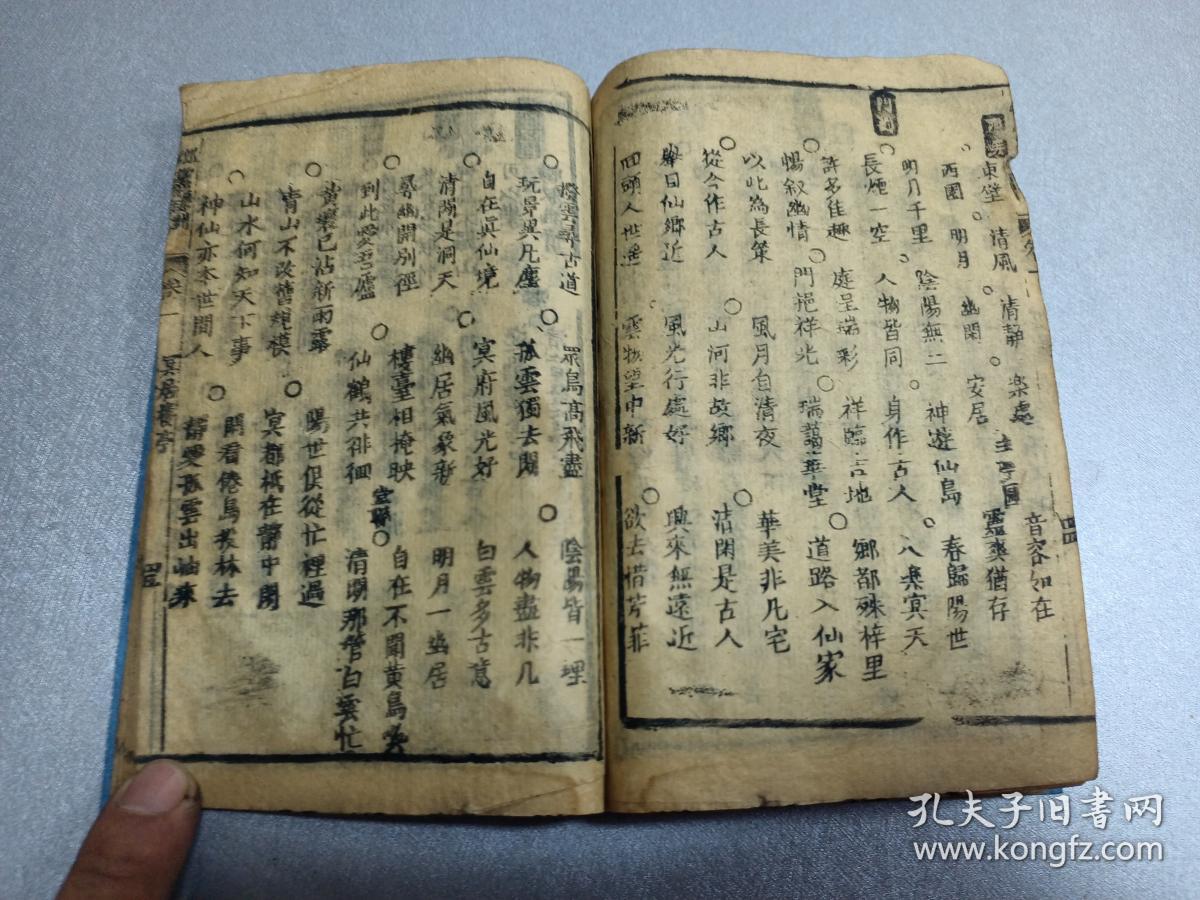 東壁 清風 清静 樂處 音容如在
西園 明月 幽閑 安居 靈爽猶存
明月千里 陰陽無二 神遊仙島 春歸陽世
長煙一空 人物皆同 身作古人 八奏冥天
許多佳趣 庭呈瑞彩 祥臨吉地 鄉都殊梓里
暢叙幽情 門挹祥光 瑞藹華堂 道路入仙家
以此為長策 風月自清夜 華美非凡宅
從今作古人 山河非故鄉 沽閑是古人
舉目仙鄉近 風光行處好 興來無遠近
回頭人世遥 雲物望中新 欲去惜芳菲
撥雲尋古道 眾鳥高飛盡 陰陽皆一理
玩景異凡塵 孤雲獨去閑 人物盡非凡
自在真仙境 冥府風光好 白雲多古意
清閑是洞天 幽居氣象新 明月一幽居
尋幽開別徑 樓臺相掩映 自在不關黄鳥
到此愛吾廬 仙鶴共徘徊 清閑那管白雲忙
黄壤已沾新雨露 陽世但從忙裡過
青山不改舊規模 冥都祇在静中閑
山水何知天下事 閑看倦鳥投林去
神仙亦本世間人 静愛孤雲出岫来
冥居樓亭
孔夫子旧书网
www.kongfz.com